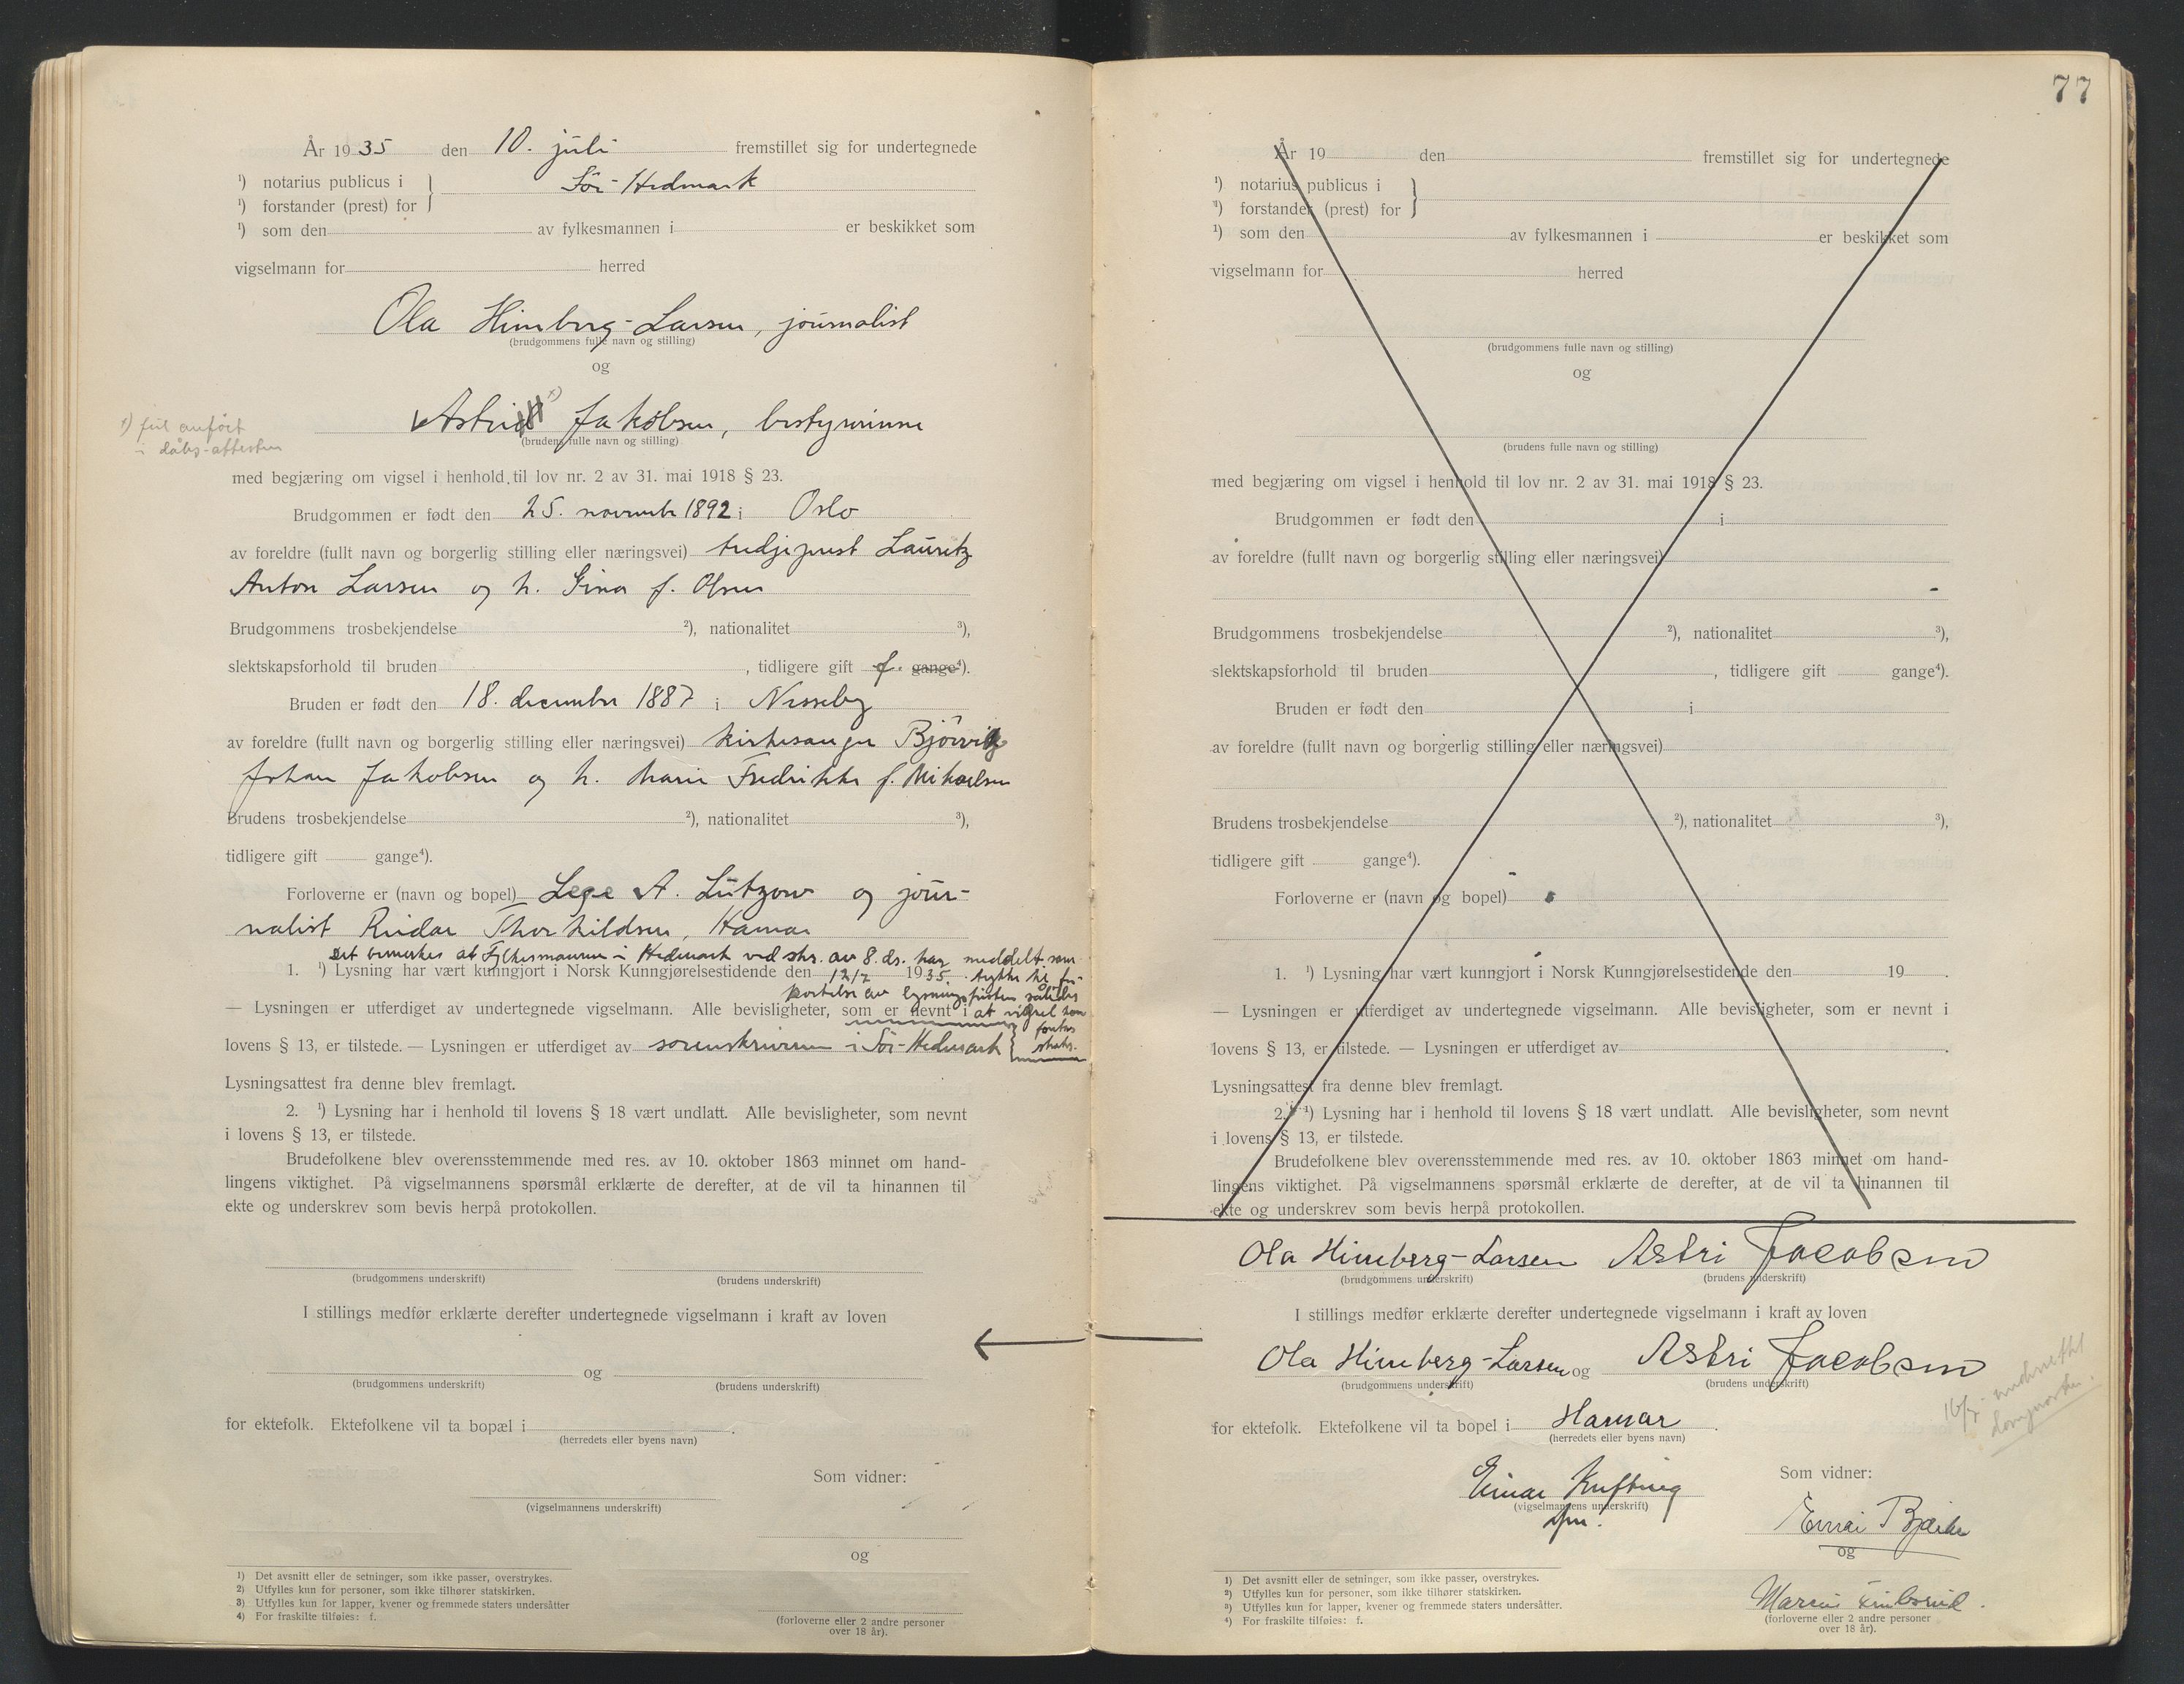 År 1935 den 10. juli fremstillet sig for undertegnede
¹) notarius publicus i
Sör-Hedmark
¹) forstander (prest) for
¹) som den av fylkesmannen i er beskikket som
vigselmann for herred
Ola Himberg-Larsen, journalist
(brudgommens fulle navn og stilling)
og
Astri Jakobsen, bestyrerinne
(brudens fulle navn og stilling)
x) feil anført
i dåbs-attesten
med begjæring om vigsel i henhold til lov nr. 2 av 31. mai 1918 § 23.
Brudgommen er født den 25. novembr 1892 i Oslo
av foreldre (fullt navn og borgerlig stilling eller næringsvei) tredjeprest Lauritz
Anton Larsen og h. Gina f. Olsen
Brudgommens trosbekjendelse ²), nationalitet ³),
slektskapsforhold til bruden , tidligere gift f. gange⁴).
Bruden er født den 18. december 1887 i Nesseby
av foreldre (fullt navn og borgerlig stilling eller næringsvei) kirkesanger Björvig
Johan Jakobsen og h. Marie Fredrikke f. Mikaelsen
Brudens trosbekjendelse ²), nationalitet ³),
tidligere gift gange⁴).
Forloverne er (navn og bopel) Lege A. Lützow og jour-
nalist Reidar Thorkildsen, Hamar
Det bemerkes at Fylkesmannen i Hedmark ved skr. av 8. ds. har meddelt sam-
1. ¹) Lysning har vært kunngjort i Norsk Kunngjørelsestidende den 12/7 1935. tykke til for-
kortelse av lysningsfristen således
— Lysningen er utferdiget av undertegnede vigselmann. Alle bevisligheter, som er nevnt i at vigsel kan
foretas
lovens § 13, er tilstede. — Lysningen er utferdiget av sorenskriveren i Sör-Hedmark straks.
Lysningsattest fra denne blev fremlagt.
2. ¹) Lysning har i henhold til lovens § 18 vært undlatt. Alle bevisligheter, som nevnt
i lovens § 13, er tilstede.
Brudefolkene blev overensstemmende med res. av 10. oktober 1863 minnet om hand-
lingens viktighet. På vigselmannens spørsmål erklærte de derefter, at de vil ta hinannen til
ekte og underskrev som bevis herpå protokollen.
(brudgommens underskrift) (brudens underskrift)
I stillings medfør erklærte derefter undertegnede vigselmann i kraft av loven
og
(brudgommens underskrift) (brudens underskrift)
for ektefolk. Ektefolkene vil ta bopæl i .
(herredets eller byens navn)
Som vidner:
(vigselmannens underskrift)
og
(forloverne eller 2 andre personer
over 18 år).
1) Det avsnitt eller de setninger, som ikke passer, overstrykes.
2) Utfylles kun for personer, som ikke tilhører statskirken.
3) Utfylles kun for lapper, kvener og fremmede staters undersåtter
4) For fraskilte tilføies: f.
77
År 19 den fremstillet sig for undertegnede
¹) notarius publicus i
¹) forstander (prest) for
¹) som den av fylkesmannen i er beskikket som
vigselmann for herred
(brudgommens fulle navn og stilling)
og
(brudens fulle navn og stilling)
med begjæring om vigsel i henhold til lov nr. 2 av 31. mai 1918 § 23.
Brudgommen er født den i
av foreldre (fullt navn og borgerlig stilling eller næringsvei)
Brudgommens trosbekjendelse ²), nationalitet ³),
slektskapsforhold til bruden , tidligere gift gange⁴).
Bruden er født den i
av foreldre (fullt navn og borgerlig stilling eller næringsvei)
Brudens trosbekjendelse ²), nationalitet ³),
tidligere gift gange⁴).
Forloverne er (navn og bopel)
1. ¹) Lysning har vært kunngjort i Norsk Kunngjørelsestidende den 19 .
— Lysningen er utferdiget av undertegnede vigselmann. Alle bevisligheter, som er nevnt i
lovens § 13, er tilstede. — Lysningen er utferdiget av .
Lysningsattest fra denne blev fremlagt.
2. ¹) Lysning har i henhold til lovens § 18 vært undlatt. Alle bevisligheter, som nevnt
i lovens § 13, er tilstede.
Brudefolkene blev overensstemmende med res. av 10. oktober 1863 minnet om hand-
lingens viktighet. På vigselmannens spørsmål erklærte de derefter, at de vil ta hinannen til
ekte og underskrev som bevis herpå protokollen.
Ola Himberg-Larsen Astri Jacobsen
(brudgommens underskrift) (brudens underskrift)
I stillings medfør erklærte derefter undertegnede vigselmann i kraft av loven
Ola Himberg-Larsen og Astri Jacobsen
(brudgommens underskrift) (brudens underskrift)
for ektefolk. Ektefolkene vil ta bopel i Hamar .
(herredets eller byens navn)
16/7
Einar
Som vidner:
(vigselmannens underskrift)
Bjerke
og
Marcus
(forloverne eller 2 andre personer
over 18 år).
1) Det avsnitt eller de setninger, som ikke passer, overstrykes.
2) Utfylles kun for personer, som ikke tilhører statskirken.
3) Utfylles kun for lapper, kvener og fremmede staters undersåtter.
4) For fraskilte tilføies: f.